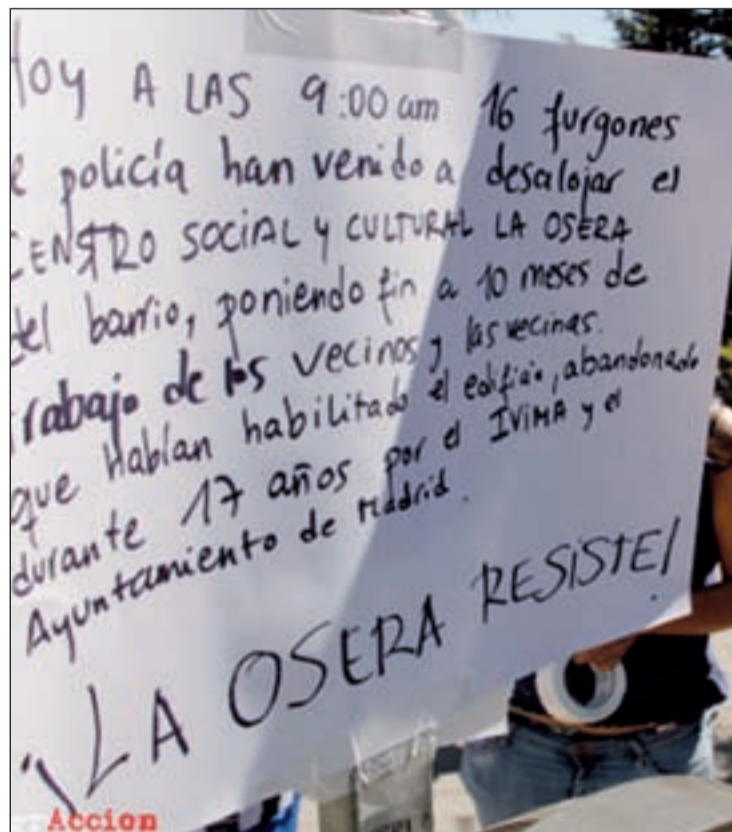 Hoy A LAS 9:00 am 16 furgones
e policía han venido a desalojar el
CENTRO SOCIAL y CULTURAL LA OSERA
del barrio, poniendo fin a 10 meses de
trabajo de los vecinos y las vecinas.
que habían habilitado el edificio, abandonado
durante 17 años por el IVIMA y el
Ayuntamiento de Madrid.
¡LA OSERA RESISTE!
Accion